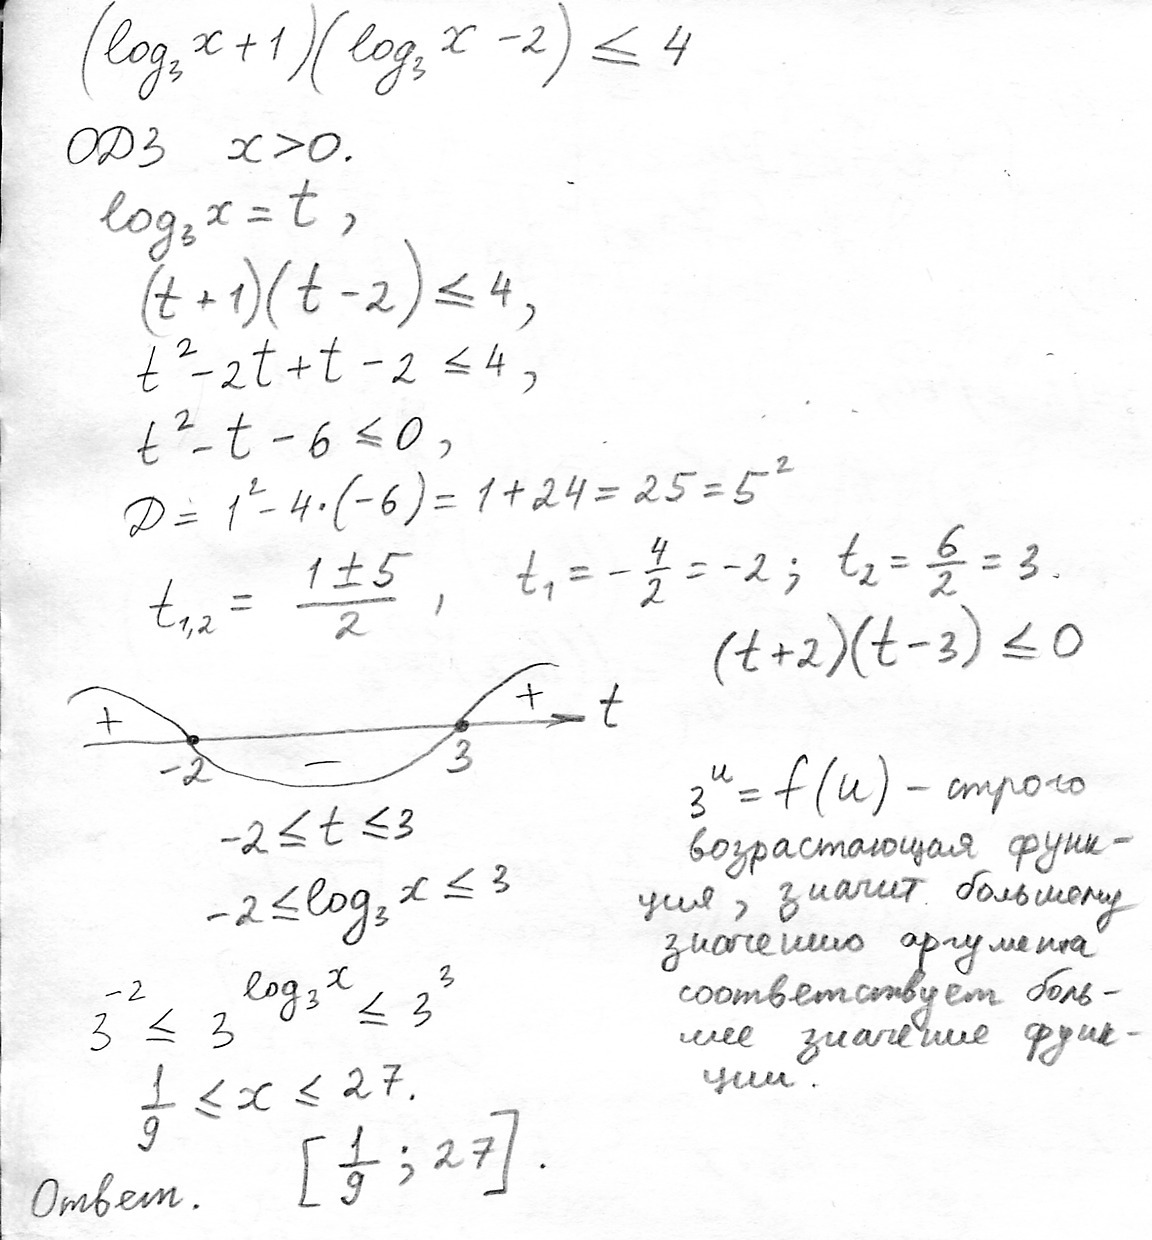 (log₃ x + 1)(log₃ x - 2) ≤ 4
ОДЗ x > 0.
log₃ x = t,
(t + 1)(t - 2) ≤ 4,
t² - 2t + t - 2 ≤ 4,
t² - t - 6 ≤ 0,
D = 1² - 4·(-6) = 1 + 24 = 25 = 5²
t₁,₂ = (1 ± 5)/2, t₁ = -4/2 = -2; t₂ = 6/2 = 3.
(t + 2)(t - 3) ≤ 0
+ - + t
-2 3
-2 ≤ t ≤ 3
-2 ≤ log₃ x ≤ 3
3⁻² ≤ 3^(log₃ x) ≤ 3³
1/9 ≤ x ≤ 27.
3ᵘ = f(u) – строго
возрастающая функ-
ция, значит большему
значению аргумента
соответствует боль-
шее значение функ-
ции.
Ответ. [1/9; 27].